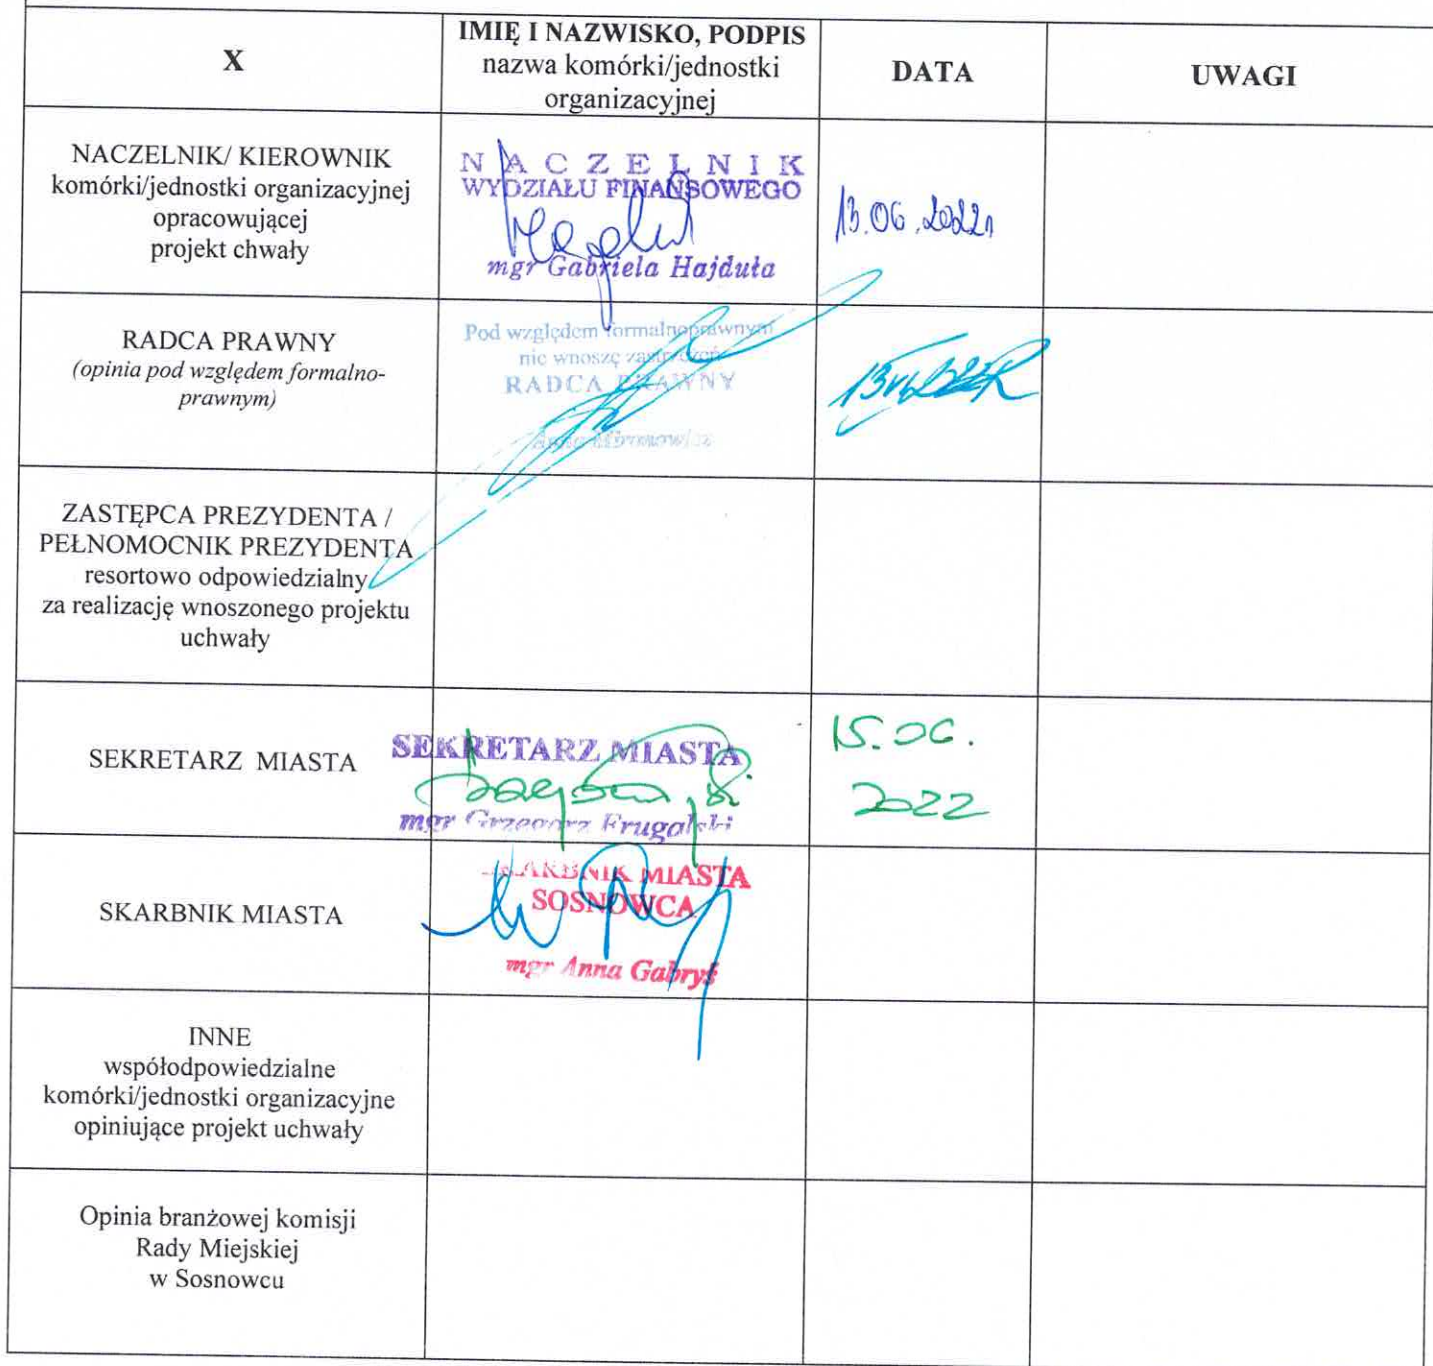 X
IMIĘ I NAZWISKO, PODPIS
nazwa komórki/jednostki
organizacyjnej
DATA
UWAGI
NACZELNIK/ KIEROWNIK
komórki/jednostki organizacyjnej
opracowującej
projekt chwały
NACZELNIK
WYDZIAŁU FINANSOWEGO
mgr Gabriela Hajduła
13.06.2022r
RADCA PRAWNY
(opinia pod względem formalno-
prawnym)
Pod względem formalnoprawnym
nie wnoszę zastrzeżeń
RADCA PRAWNY
Anna
ZASTĘPCA PREZYDENTA /
PEŁNOMOCNIK PREZYDENTA
resortowo odpowiedzialny
za realizację wnoszonego projektu
uchwały
SEKRETARZ MIASTA
SEKRETARZ MIASTA
mgr Grzegorz Frugalski
15.06.
2022
SKARBNIK MIASTA
SKARBNIK MIASTA
SOSNOWCA
mgr Anna Gabryś
INNE
współodpowiedzialne
komórki/jednostki organizacyjne
opiniujące projekt uchwały
Opinia branżowej komisji
Rady Miejskiej
w Sosnowcu